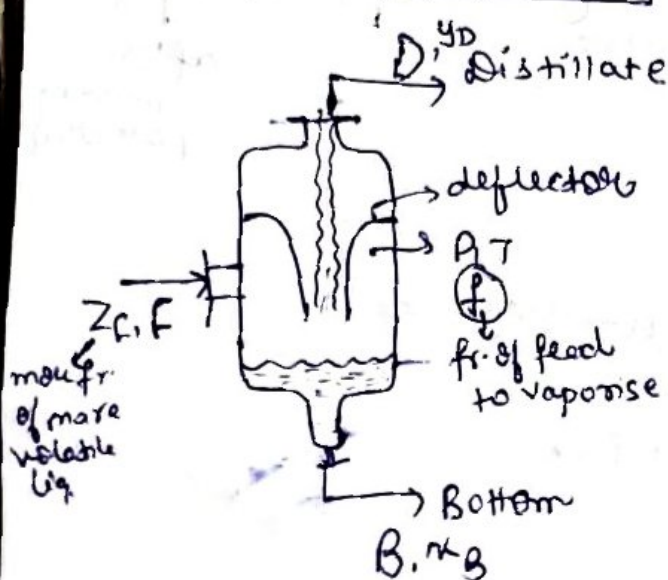 D, yD Distillate
deflector
P, T
f
fr. of feed
to vaporise
ZF, F
mole fr.
of more
volatile
liq
Bottom
B, xB